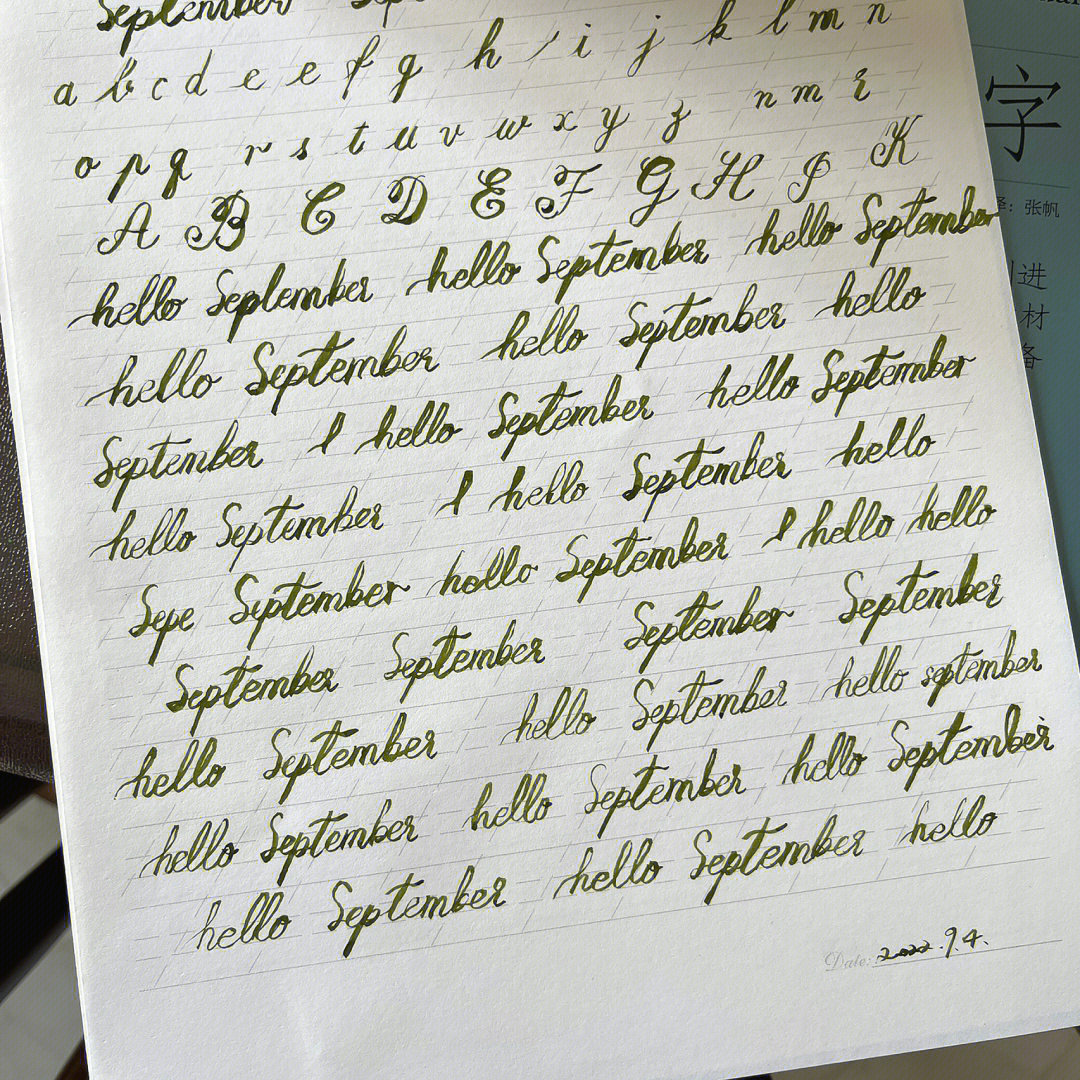 September
a b c d e e f g h i j k l m n
o p q r s t u v w x y z n m r
A B C D E F G H I K
hello September hello September hello September
hello September hello September hello
September l hello September hello September
hello September l hello September hello
Sepe September hello September l hello hello
September September September September
hello September hello September hello september
hello September hello September hello September
hello September hello September hello
Date: 2022.9.4.
字
译：张帆
进
材
备